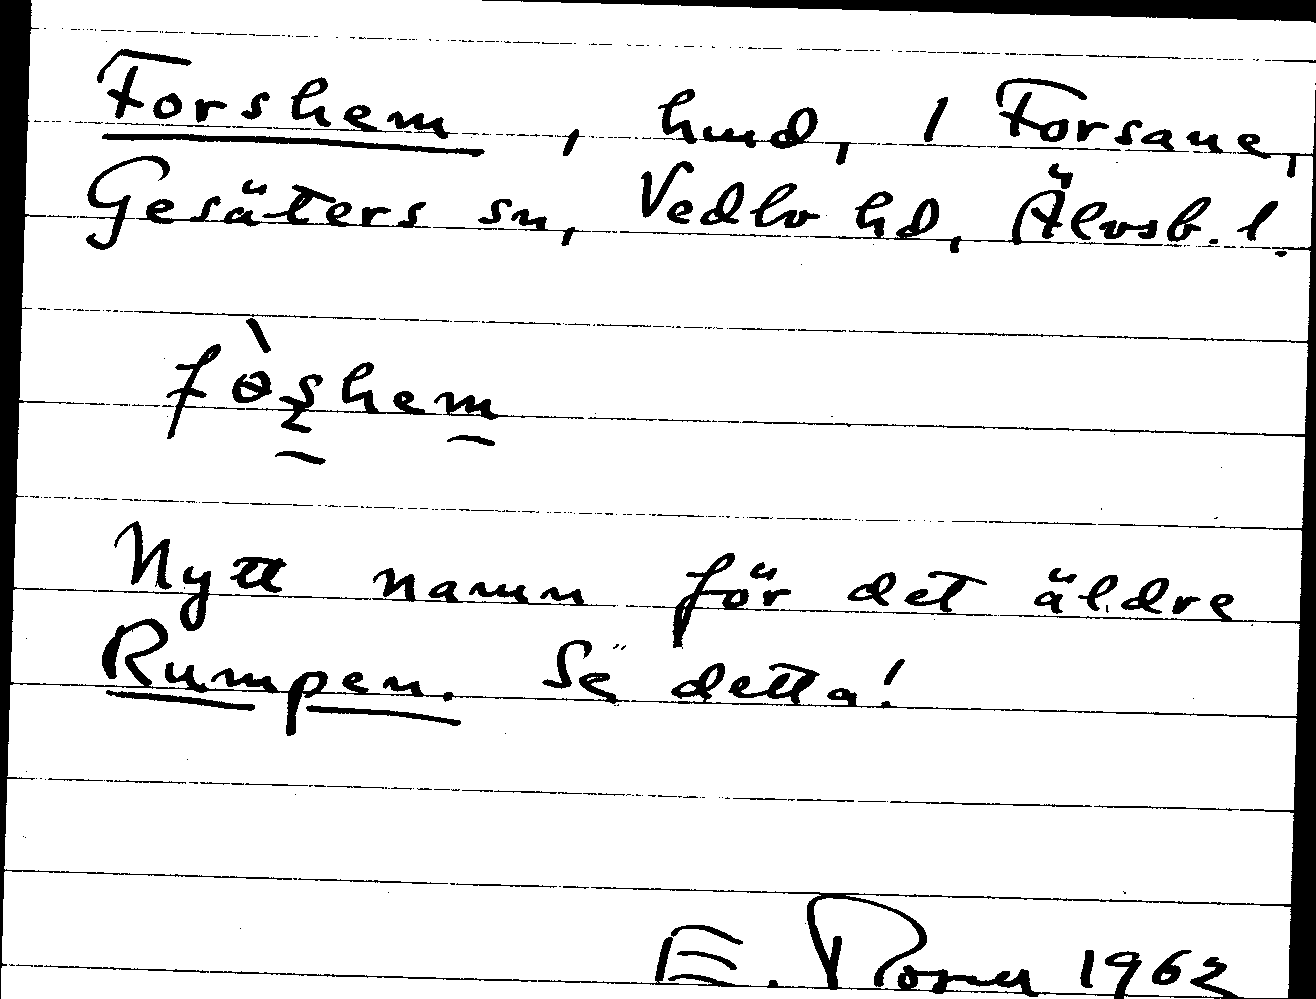 Forshem, hmd, 1 Forsane,
Gesäters sn, Vedbo hd, Älvsb. l.
fò̵s̱hem
Nytt namn för det äldre
Rumpen. Se detta!
E. 1962